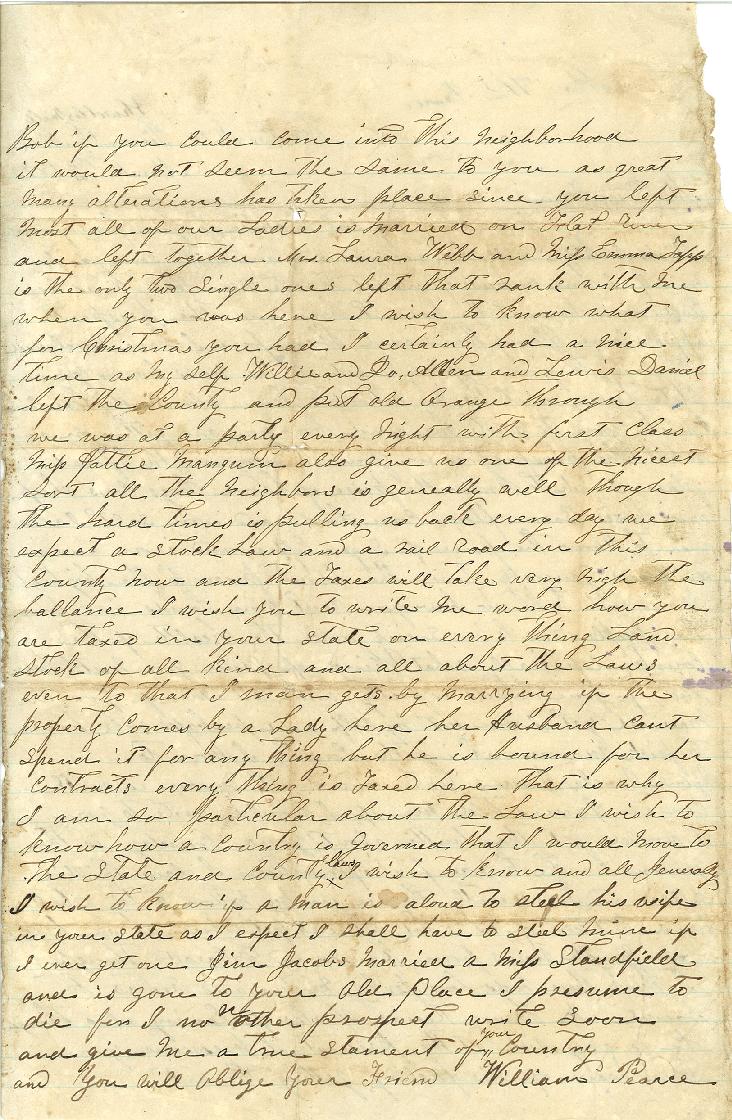 Bob if you could come into this neighborhood
it would not seem the same to you as great
many alterations has taken place since you left
most all of our Ladies is Married on Flat River
and left together Mrs. Laura Webb and Miss Emma Tapp
is the only two Single ones left that rank with me
when you was here I wish to know what
for Christmas you had I certainly had a nice
time as my self Willie and Do, Allen and Lewis Daniel
left the County and put old Orange through
we was at a party every night with first class
Miss Hattie Mangum also give us one of the nicest
sort all the neighbors is geneally well though
the hard times is pulling us back every day we
expect a stock Law and a rail road in this
County now and the Taxes will take very nigh the
ballance I wish you to write me word how you
are taxed in your state on every thing Land
stock of all kind and all about the Laws
even to that I man gets by marrying if the
property comes by a Lady here her Husband cant
spend it for any thing but he is bound for her
contracts every thing is Taxed here that is why
I am so Particular about the Law I wish to
know how a Country is governed that I would move to
the State and County Laws I wish to know and all Generally
I wish to know if a man is aloud to steel his wife
in your state as I expect I shall have to steel mine if
I ever get one Jim Jacobs Married a Miss Standfield
and is gone to your old Place I presume to
die for I no nother prospect write soon
and give me a true stament of your Country
and You will Oblige Your Friend William Pearce